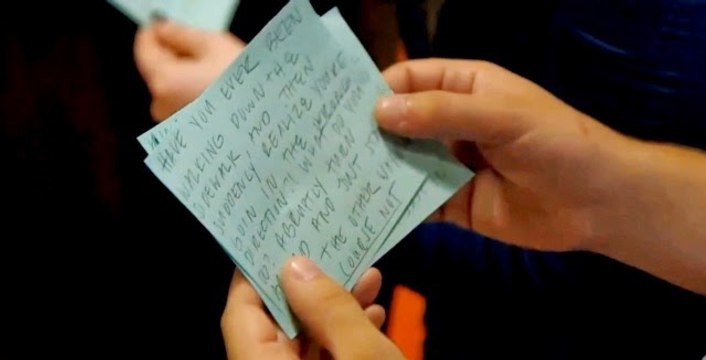 HAVE YOU EVER BEEN
WALKING DOWN THE
SIDEWALK AND THEN
SUDDENLY REALIZE YOU'RE
GOIN IN THE
DIRECTION? WHAT DO YOU
DO ABRUPTLY THEN
AND
THE OTHER
COURSE NOT